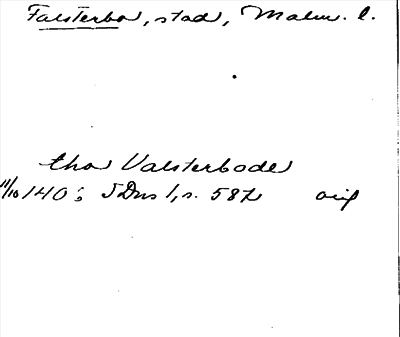 Falsterbo, stad, Malm. l.
tho Valsterbode
11/10 140 SDns 1, s. 587 orig